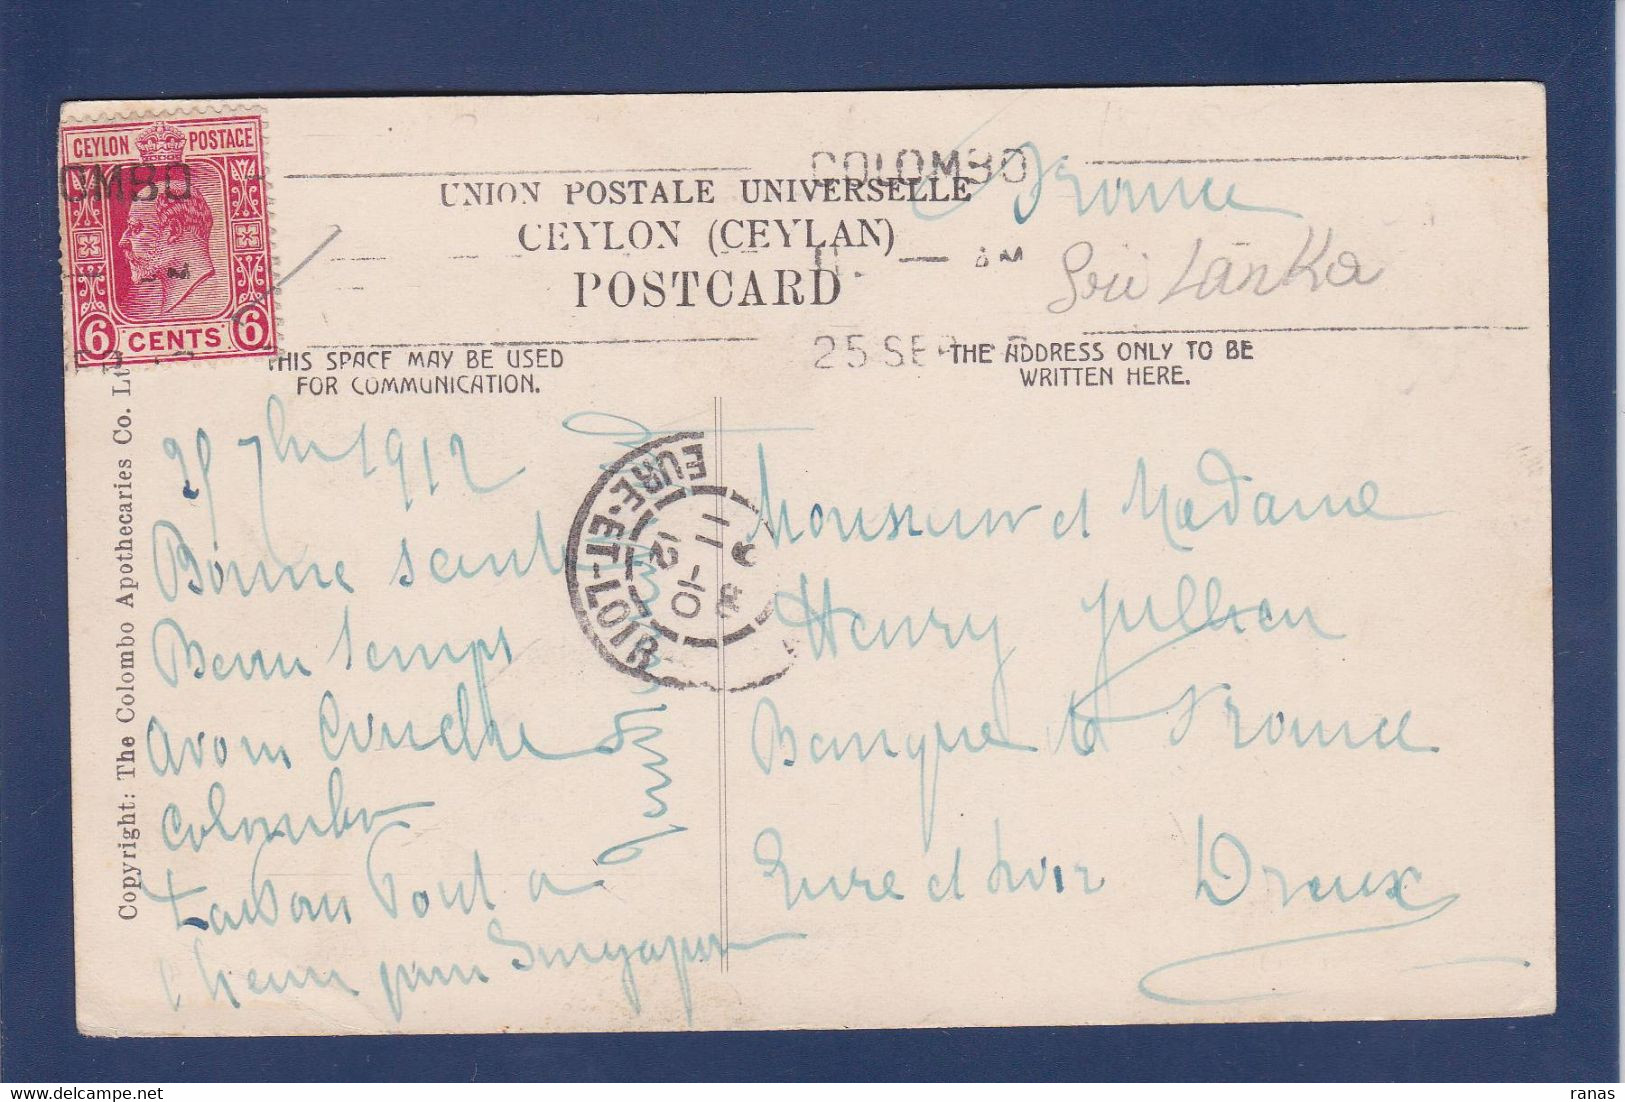 CEYLON POSTAGE
OMBO
6 CENTS 6
COLOMBO
UNION POSTALE UNIVERSELLE
CEYLON (CEYLAN)
POSTCARD
AM
25 SEP
France
Sri Lānka
THIS SPACE MAY BE USED
FOR COMMUNICATION.
THE ADDRESS ONLY TO BE
WRITTEN HERE.
Copyright: The Colombo Apothecaries Co. Lt
25 7bre 1912
Bonne santé
Beau temps
avons couché
Colombo
partons tout a
l'heure pour Singapour
EURE-ET-LOIR
11
-10
12
Monsieur et Madame
Henry Jullien
Banque de France
Eure et Loir Dreux
ranas
delcampe.net